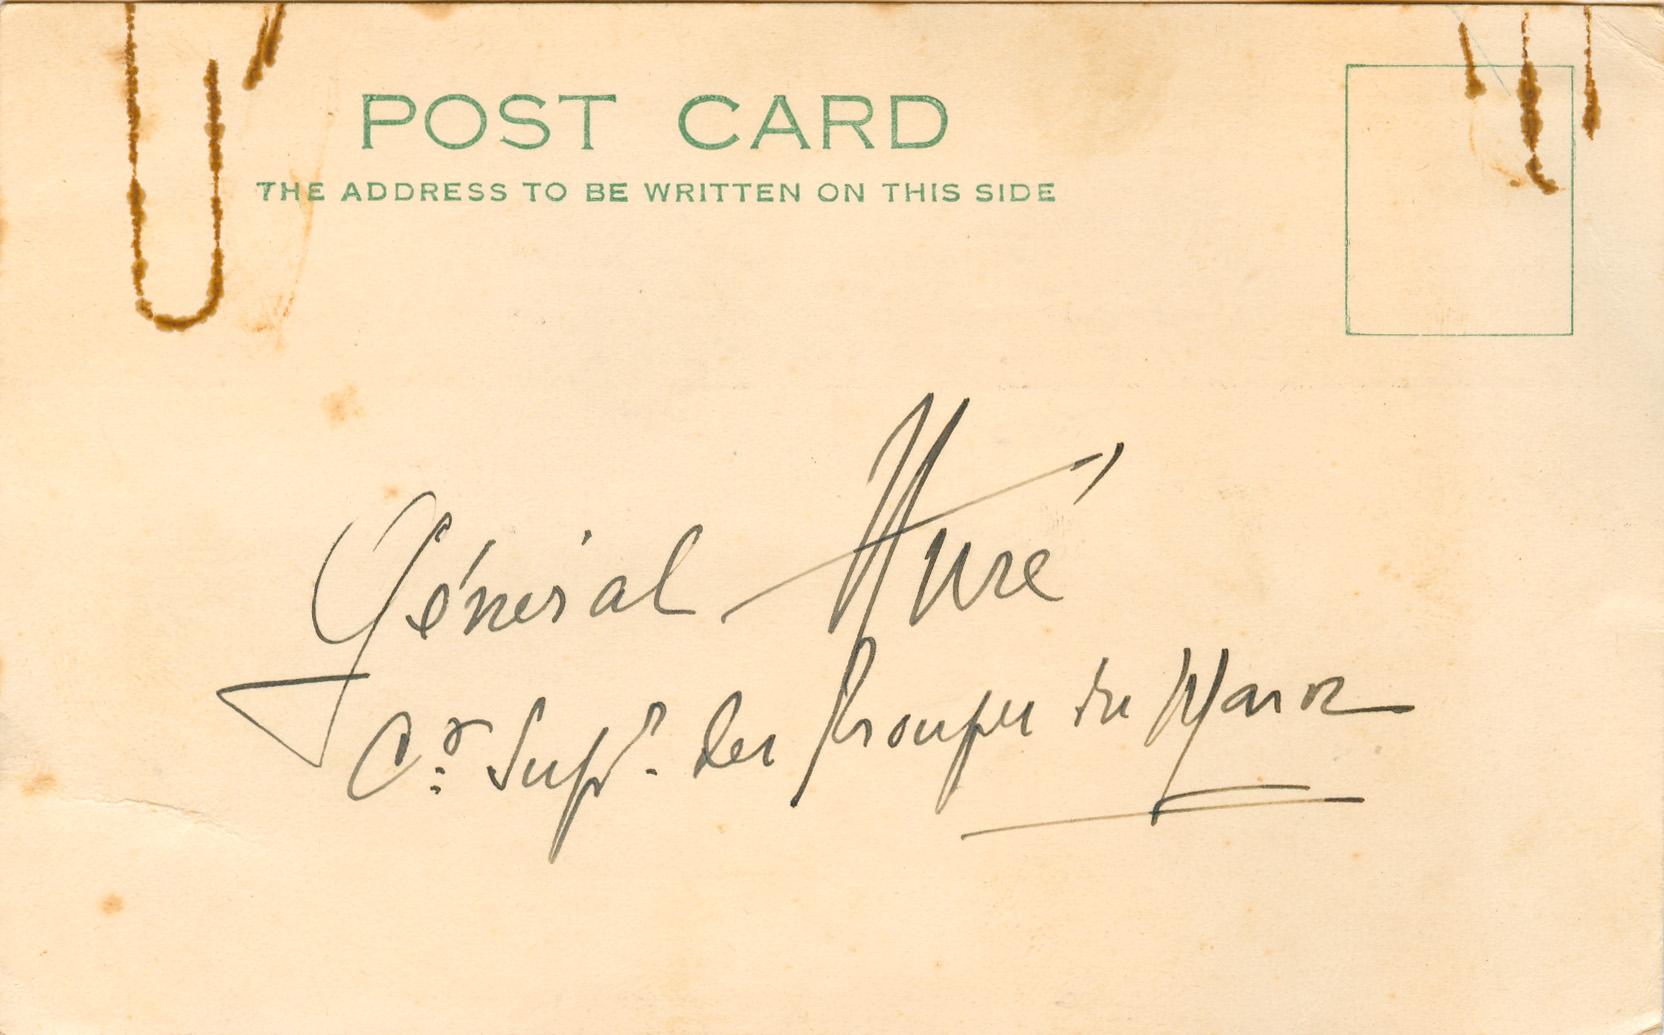 POST CARD
THE ADDRESS TO BE WRITTEN ON THIS SIDE
Général Huré
Cr. Supr. des Troupes du Maroc